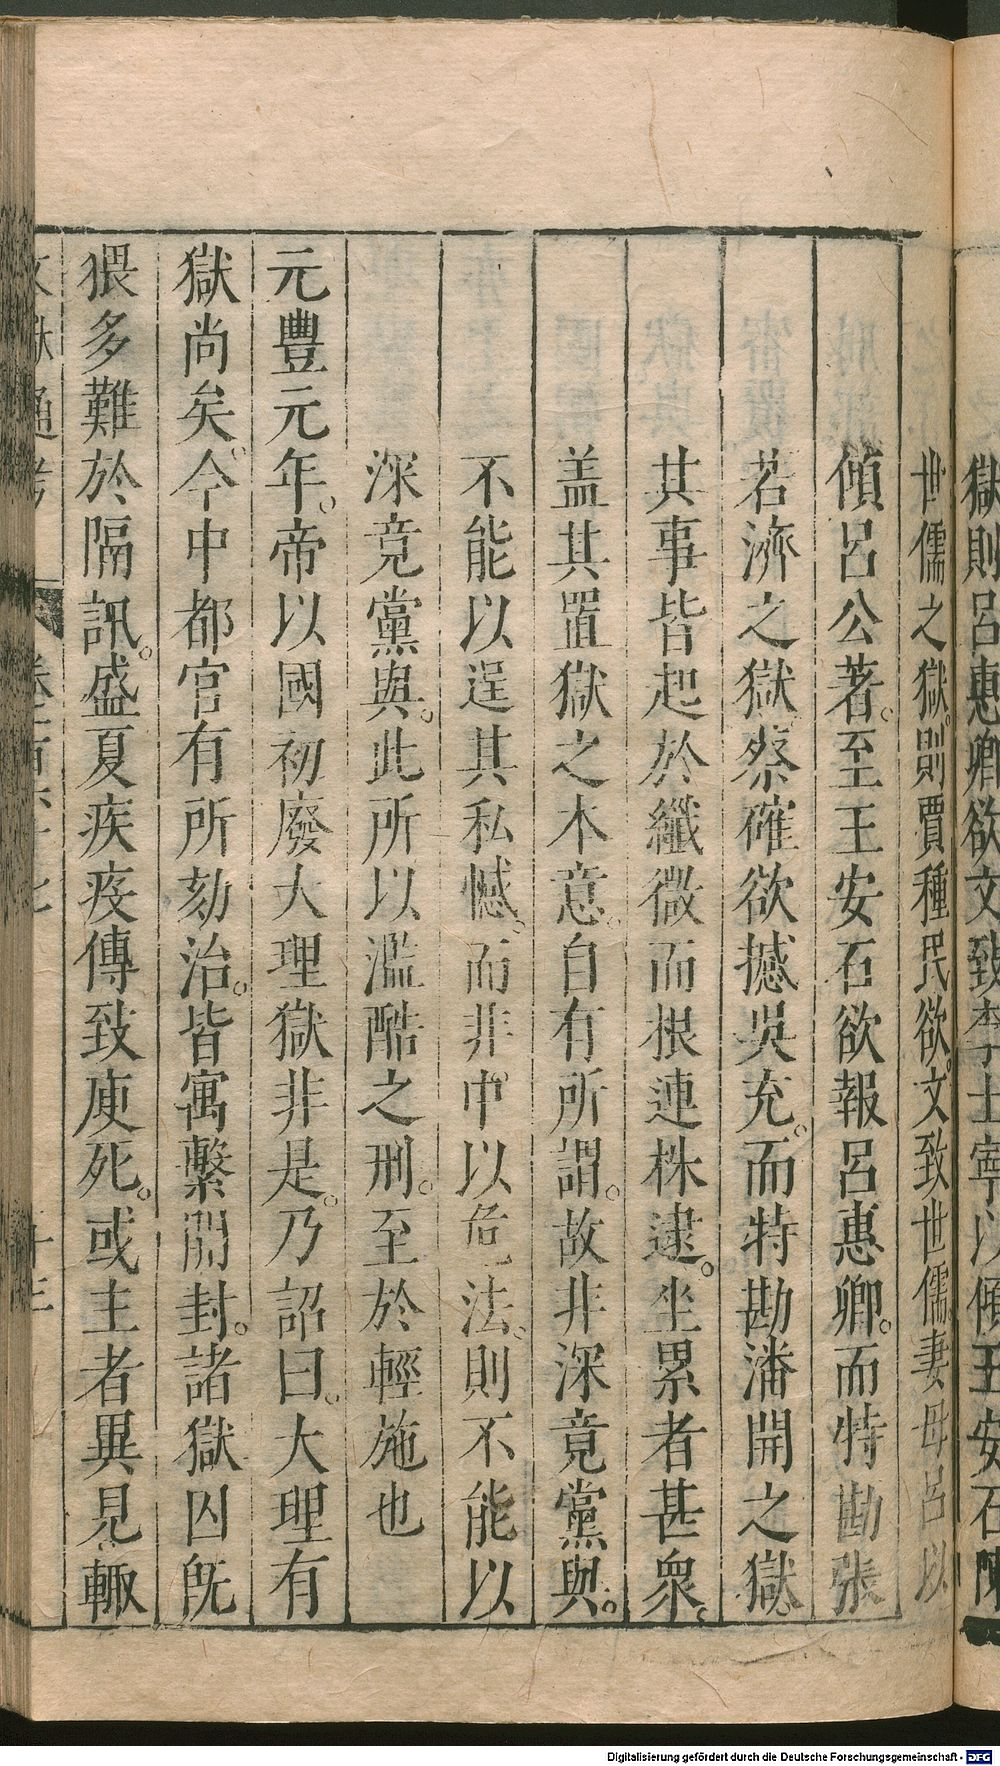 獄則呂惠卿欲文致李士寧以傾王安石陳
世儒之獄。則賈種民欲。文致世儒妻母呂以
傾呂公著。至王安石欲報呂惠卿。而特勘張
若濟之獄。蔡確欲撼吳充。而特勘潘開之獄。
其事皆起於纖微而根連株逮。坐累者甚衆。
盖其置獄之本意。自有所謂。故非深竟黨與。
不能以逞其私憾。而非中以危法。則不能以
深竟黨與。此所以濫酷之刑。至於輕施也
元豐元年。帝以國初廢大理獄非是。乃詔曰。大理有
獄尚矣。今中都官有所劾治。皆寓繫開封。諸獄囚旣
猥多難於隔訊。盛夏疾疫傳致庾死。或主者異見輙
文獻通考 卷百六十七
Digitalisierung gefördert durch die Deutsche Forschungsgemeinschaft - DFG